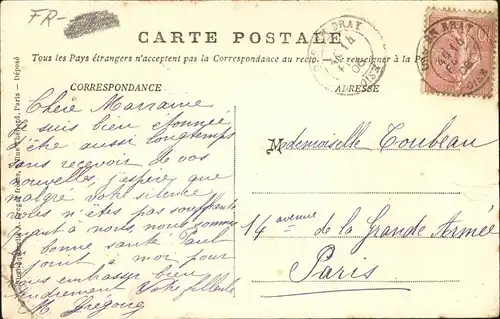 FR-
CARTE POSTALE
Tous les Pays étrangers n'acceptent pas la Correspondance au recto. — Se renseigner à la Poste
CORRESPONDANCE
ADRESSE
EN BRAY
Chère Marraine
Je suis bien étonnée
d'être aussi longtemps
sans recevoir de vos
nouvelles, j'espère que
malgré votre silence
vous n'êtes pas souffrante
quant à nous, nous sommes
bonne santé Paul
joint à moi pour
vous embrasser bien
tendrement Votre filleule
M. Grégoire
Mademoiselle Toubeau
14 avenue
de la Grande Armée
Paris